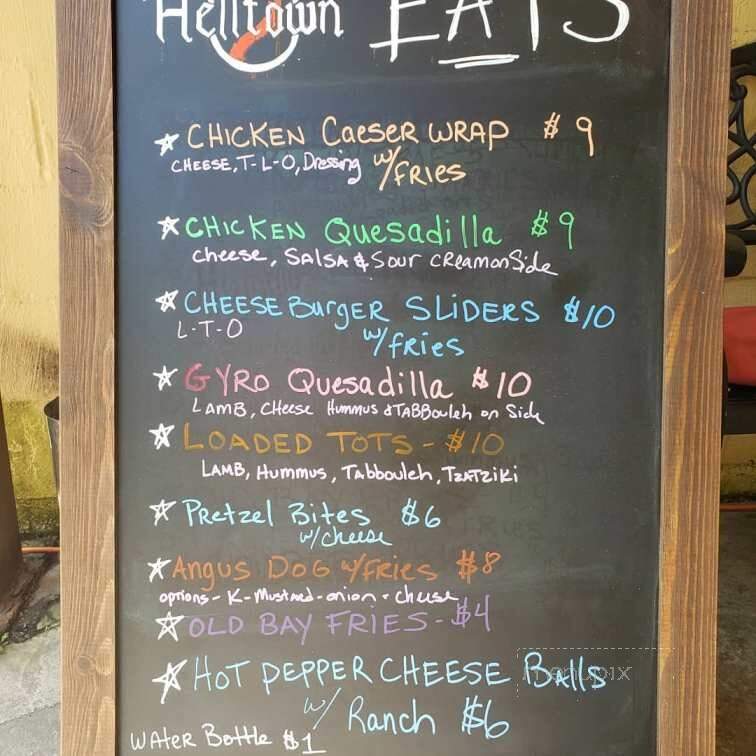 Helltown EATS
CHICKEN Caeser WRAP $9
CHEESE, T-L-O, Dressing w/FRIES
CHICKEN Quesadilla $9
cheese, SALSA & Sour CReam on Side
CHEESE BurgER SLiDERS $10
L-T-O w/fRies
GYRO Quesadilla $10
LAMB, CHeese Hummus & TABBouleh on Side
LOADED TOTS - $10
LAMB, Hummus, Tabbouleh, TZATZiki
Pretzel Bites $6
w/cheese
Angus DOG w/FRies $8
options - K-Mustard-onion-cheese
OLD BAY FRIES - $4
HOT PEPPER CHEESE Balls
w/ Ranch $6
WATER Bottle $1
menupix